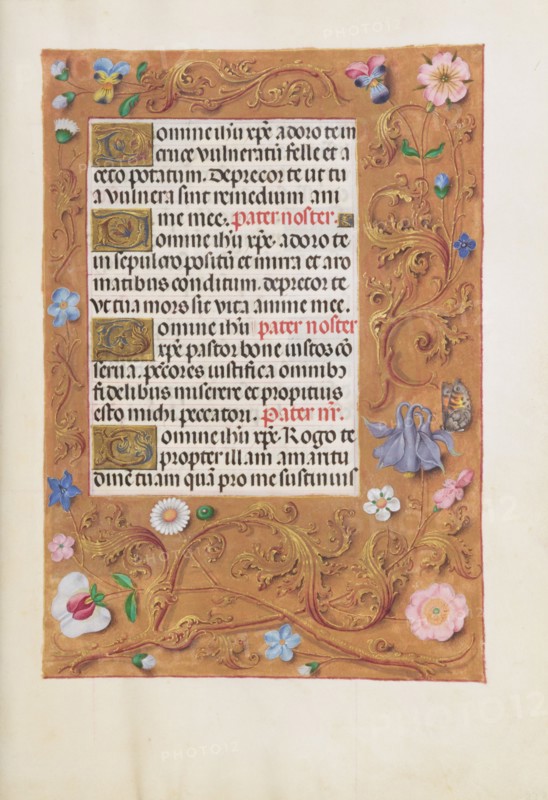 Domine ihū xp̄e adoro te in
cruce vulneratū felle et a
ceto potatum. deprecor te ut tu
a vulnera sint remedium ani
me mee. Pater noster.
Domine ihū xp̄e. adoro te
in sepulcro positū et mirra et aro
matibus conditum. deprecor te
vt tua mors sit vita anime mee.
Domine ihū pater noster
xp̄e pastor bone iustos cō
serua. peccores iustifica omnibꝫ
fidelibus miserere et propitius
esto michi peccatori. Pater nr̄.
Domine ihū xp̄e. Rogo te
propter illam amaritu
dinē tuam quā pro me sustinuis